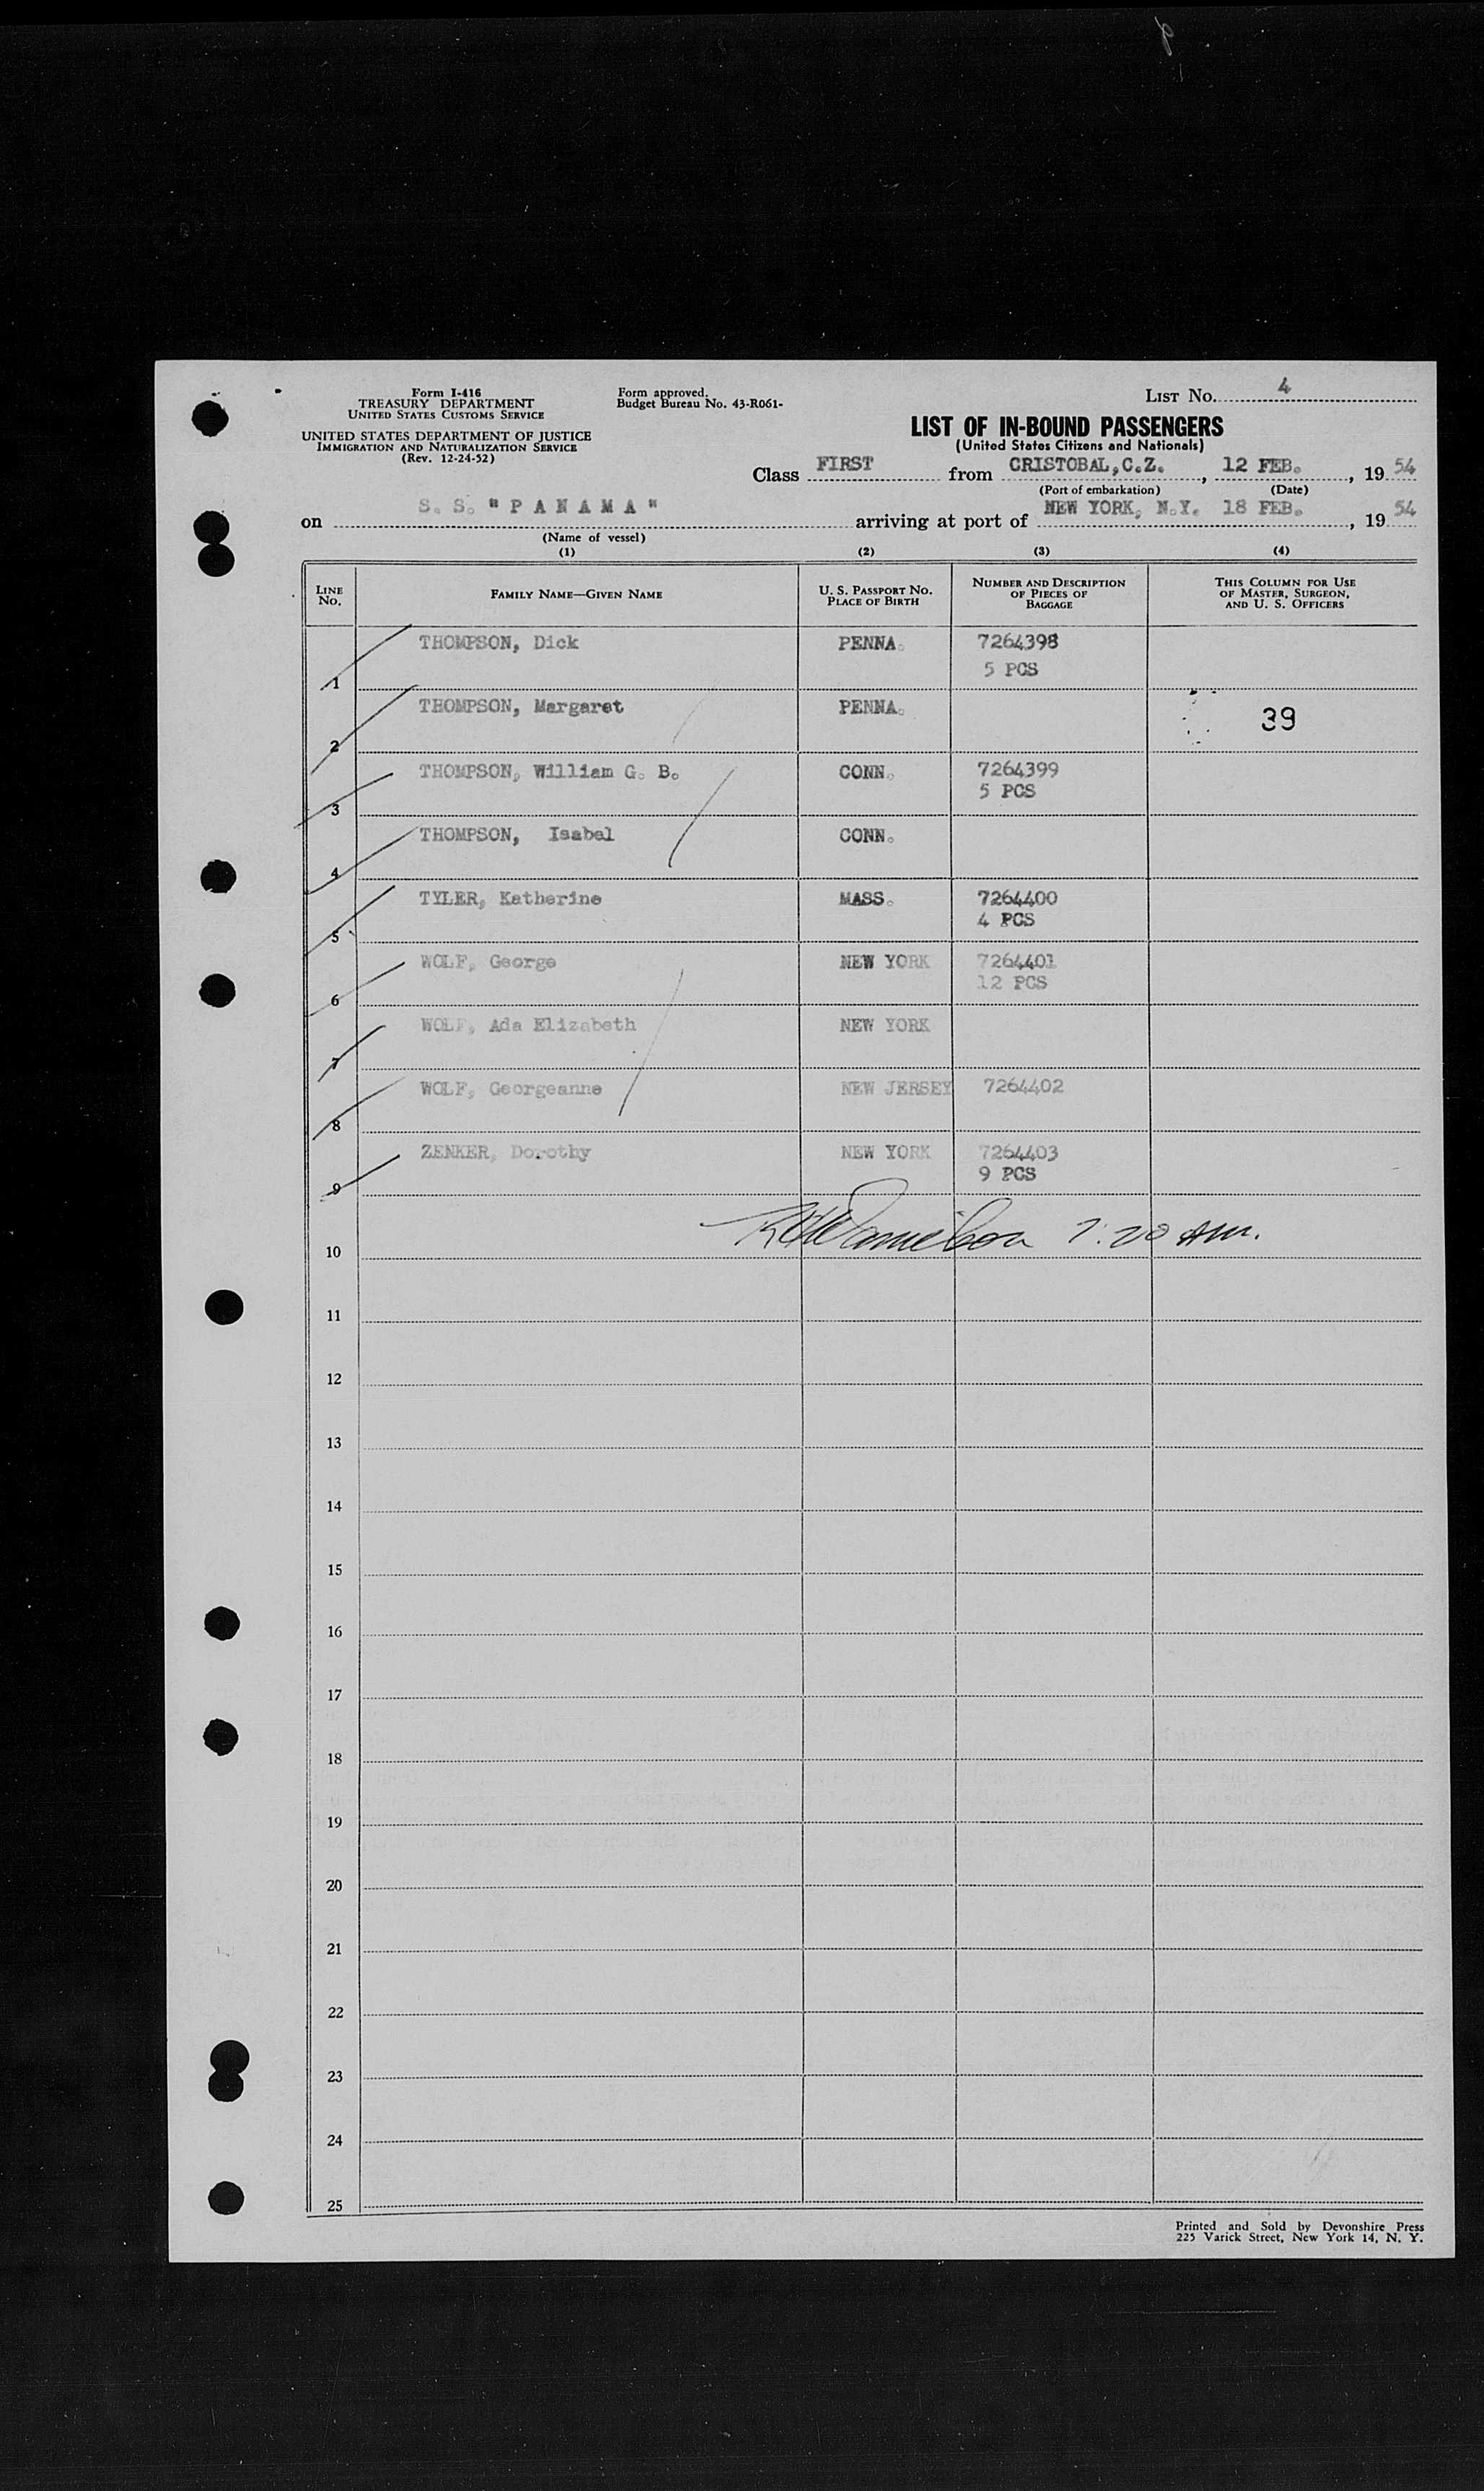 Form I-416
TREASURY DEPARTMENT
UNITED STATES CUSTOMS SERVICE
UNITED STATES DEPARTMENT OF JUSTICE
IMMIGRATION AND NATURALIZATION SERVICE
(Rev. 12-24-52)
Form approved.
Budget Bureau No. 43-R061-
LIST No. 4
LIST OF IN-BOUND PASSENGERS
(United States Citizens and Nationals)
Class FIRST from CRISTOBAL, C.Z., 12 FEB., 1954
(Port of embarkation) (Date)
on S. S. "P A N A M A" arriving at port of NEW YORK, N.Y. 18 FEB., 1954
(Name of vessel)
(1) (2) (3) (4)
LINE No. FAMILY NAME—GIVEN NAME U. S. PASSPORT No. PLACE OF BIRTH NUMBER AND DESCRIPTION OF PIECES OF BAGGAGE THIS COLUMN FOR USE OF MASTER, SURGEON, AND U. S. OFFICERS
1 THOMPSON, Dick PENNA. 7264398
5 PCS
2 THOMPSON, Margaret PENNA. 39
3 THOMPSON, William G. B. CONN. 7264399
5 PCS
4 THOMPSON, Isabel CONN.
5 TYLER, Katherine MASS. 7264400
4 PCS
6 WOLF, George NEW YORK 7264401
12 PCS
7 WOLF, Ada Elizabeth NEW YORK
8 WOLF, Georgeanne NEW JERSEY 7264402
9 ZENKER, Dorothy NEW YORK 7264403
9 PCS
10 7:20 AM.
11
12
13
14
15
16
17
18
19
20
21
22
23
24
25
Printed and Sold by Devonshire Press
225 Varick Street, New York 14, N. Y.